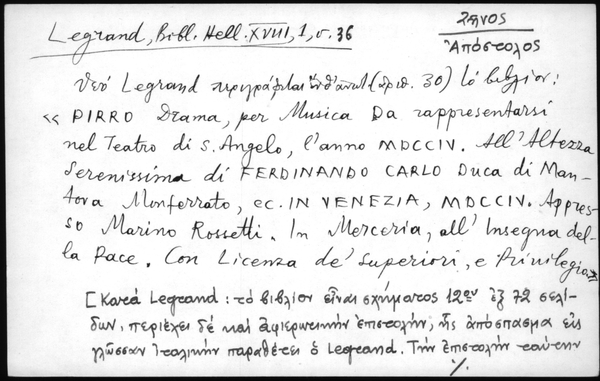 Legrand, Bibl. Hell. XVIII, 1, σ. 36
Ζῆνος
Ἀπόστολος
Ὑπό Legrand περιγράφεται ἐνθ' ἀνωτ. (ἀριθ. 30) τό βιβλίον:
« PIRRO Drama, per Musica Da rappresentarsi
nel Teatro di S. Angelo, l'anno MDCCIV. All'Altezza
Serenissima di FERDINANDO CARLO Duca di Man-
tova Monferrato, ec. IN VENEZIA, MDCCIV. Appres-
so Marino Rossetti. In Merceria, all'Insegna del-
la Pace. Con Licenza de' Superiori, e Privilegio »
[Κατά Legrand: τό βιβλίον εἶναι σχήματος 12ου ἐξ 72 σελί-
δων, περιέχει δέ καί ἀφιερωτικήν ἐπιστολήν, ἧς ἀπόσπασμα εἰς
γλῶσσαν Ἰταλικήν παραθέτει ὁ Legrand. Τήν ἐπιστολήν ταύτην
./.